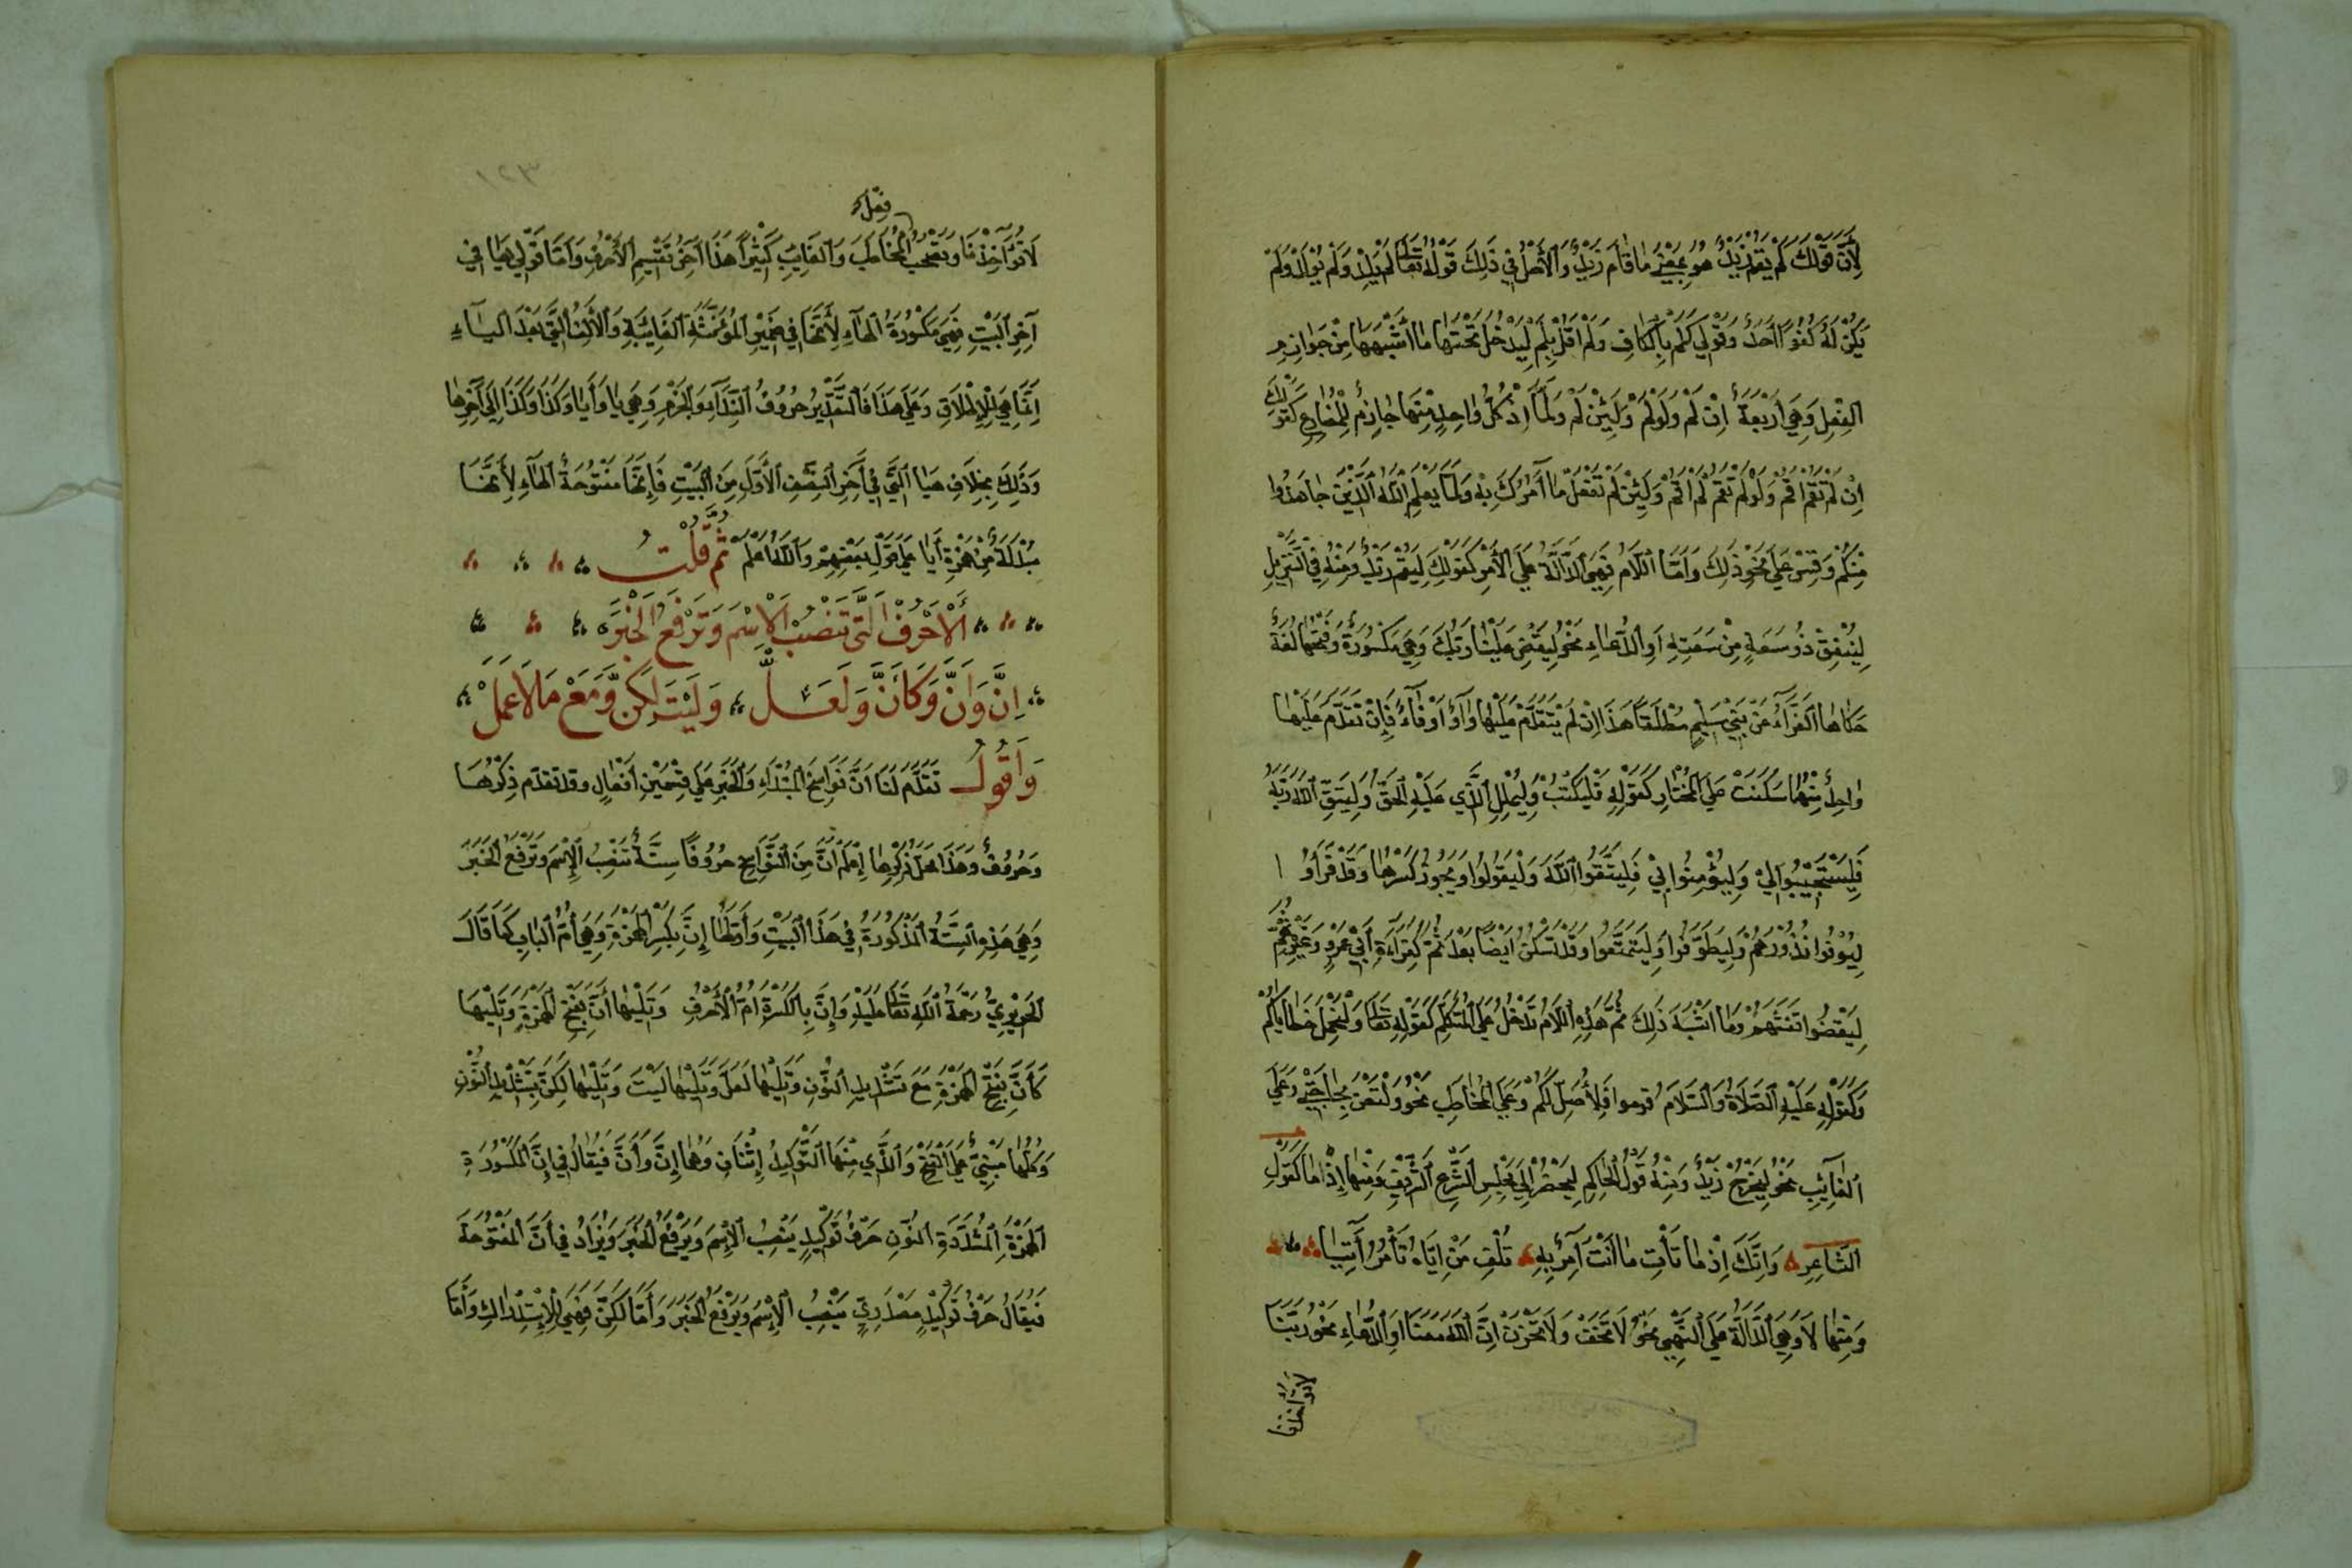 لِأَنَّ قَوْلَكَ لَمْ يَقُمْ زَيْدٌ هُوَ بِمَعْنَى مَا قَامَ زَيْدٌ وَالْأَصْلُ فِي ذَلِكَ قَوْلُهُ تَعَالَى لَمْ يَلِدْ وَلَمْ يُولَدْ وَلَمْ
يَكُنْ لَهُ كُفُوًا أَحَدٌ وَقَوْلِي كَلَمْ بِالْكَافِ وَلَمْ أَقُلْ بِلَمْ لِيَدْخُلَ تَحْتَهَا مَا أَشْبَهَهَا مِنْ جَوَازِمِ
الْفِعْلِ وَهِيَ أَرْبَعَةٌ إِنْ لَمْ وَلَوْ لَمْ وَلَئِنْ لَمْ وَلَمَّا إِذْ كُلُّ وَاحِدٍ مِنْهَا جَازِمٌ لِلْمُضَارِعِ كَقَوْلِكَ
إِنْ لَمْ تَقُمْ أَقُمْ وَلَوْ لَمْ تَقُمْ لَمْ أَقُمْ وَلَئِنْ لَمْ تَفْعَلْ مَا آمُرُكَ بِهِ وَلَمَّا يَعْلَمِ اللَّهُ الَّذِينَ جَاهَدُوا
مِنْكُمْ وَقِسْ عَلَى نَحْوِ ذَلِكَ وَأَمَّا اللَّامُ فَهِيَ الدَّالَّةُ عَلَى الْأَمْرِ كَقَوْلِكَ لِيَقُمْ زَيْدٌ وَمِنْهُ فِي التَّنْزِيلِ
لِيُنْفِقْ ذُو سَعَةٍ مِنْ سَعَتِهِ أَوِ الدُّعَاءِ نَحْوُ لِيَقْضِ عَلَيْنَا رَبُّكَ وَهِيَ مَكْسُورَةٌ وَفَتْحُهَا لُغَةٌ
حَكَاهَا الْفَرَّاءُ عَنْ بَنِي سُلَيْمٍ مُطْلَقًا هَذَا إِنْ لَمْ يَتَقَدَّمْ عَلَيْهَا وَاوٌ أَوْ فَاءٌ فَإِنْ تَقَدَّمَ عَلَيْهَا
وَاحِدٌ مِنْهُمَا سَكَنَتْ عَلَى الْمُخْتَارِ كَقَوْلِهِ فَلْيَكْتُبْ وَلْيُمْلِلِ الَّذِي عَلَيْهِ الْحَقُّ وَلْيَتَّقِ اللَّهَ رَبَّهُ
فَلْيَسْتَجِيبُوا لِي وَلْيُؤْمِنُوا بِي فَلْيَتَّقُوا اللَّهَ وَلْيَقُولُوا وَيَجُوزُ كَسْرُهَا وَقَدْ قَرَأُوا
لِيُوفُوا نُذُورَهُمْ وَلِيَطَّوَّفُوا وَلِيَتَمَتَّعُوا وَقَدْ تُسَكَّنُ أَيْضًا بَعْدَ ثُمَّ كَقِرَاءَةِ أَبِي عَمْرٍو وَغَيْرِهِ ثُمَّ
لِيَقْضُوا تَفَثَهُمْ وَمَا أَشْبَهَ ذَلِكَ ثُمَّ هَذِهِ اللَّامُ تَدْخُلُ عَلَى الْمُتَكَلِّمِ كَقَوْلِهِ تَعَالَى وَلْنَحْمِلْ خَطَايَاكُمْ
وَكَقَوْلِهِ عَلَيْهِ الصَّلَاةُ وَالسَّلَامُ قُومُوا فَلِأُصَلِّ لَكُمْ وَعَلَى الْمُخَاطَبِ نَحْوُ وَلْتُعْنَ بِحَاجَتِي وَعَلَى
الْغَائِبِ نَحْوُ لِيَخْرُجْ زَيْدٌ وَمِنْهُ قَوْلُ الْحَاكِمِ لِيَحْضُرْ إِلَى مَجْلِسِ الشَّرْعِ الشَّرِيفِ وَمِنْهَا إِذْ مَا كَقَوْلِ
الشَّاعِرِ وَإِنَّكَ إِذْ مَا تَأْتِ مَا أَنْتَ آمِرٌ بِهِ تُلْفِ مَنْ إِيَّاهُ تَأْمُرُ آتِيَا
وَمِنْهَا لَا وَهِيَ الدَّالَّةُ عَلَى النَّهْيِ نَحْوُ لَا تَخَفْ وَلَا تَحْزَنْ إِنَّ اللَّهَ مَعَنَا أَوِ الدُّعَاءِ نَحْوُ رَبَّنَا
لَا تُؤَاخِذْنَا
١٢٣
فعل
لَا تُؤَاخِذْنَا وَتَصْحَبُ الْمُخَاطَبَ وَالْغَائِبَ كَثِيرًا هَذَا آخِرُ تَقْسِيمِ الْأَحْرُفِ وَأَمَّا قَوْلِي هَيَا فِي
آخِرِ الْبَيْتِ فَهِيَ مَكْسُورَةُ الْهَاءِ لِأَنَّهَا فِي ضَمِيرِ الْمُؤَنَّثَةِ الْغَائِبَةِ وَالْأَلِفُ الَّتِي بَعْدَ الْيَاءِ
إِنَّمَا هِيَ لِلْإِطْلَاقِ وَعَلَى هَذَا فَالتَّقْدِيرُ حُرُوفُ النِّدَاءِ وَالْجَزْمِ وَهِيَ يَا وَأَيَا وَكَذَا وَكَذَا إِلَى آخِرِهَا
وَذَلِكَ بِخِلَافِ هَيَا الَّتِي فِي آخِرِ النِّصْفِ الْأَوَّلِ مِنَ الْبَيْتِ فَإِنَّهَا مَفْتُوحَةُ الْهَاءِ لِأَنَّهَا
مُبْدَلَةٌ مِنْ هَمْزَةِ أَيَا عَلَى قَوْلِ بَعْضِهِمْ وَاللَّهُ أَعْلَمُ ثُمَّ قُلْتُ
أَلْأَحْرُفُ الَّتِي تَنْصُبُ الْإِسْمَ وَتَرْفَعُ الْخَبَرَ
إِنَّ وَأَنَّ وَكَأَنَّ وَلَعَلَّ وَلَيْتَ لَكِنَّ وَمَعْ مَا لَا عَمَلْ
وَأَقُولُ تَقَدَّمَ لَنَا أَنَّ نَوَاسِخَ الْمُبْتَدَاءِ وَالْخَبَرِ عَلَى قِسْمَيْنِ أَفْعَالٍ وَقَدْ تَقَدَّمَ ذِكْرُهَا
وَحُرُوفٌ وَهَذَا مَحَلُّ ذِكْرِهَا إِعْلَمْ أَنَّ مِنَ النَّوَاسِخِ حُرُوفًا سِتَّةٌ تَنْصِبُ الْإِسْمَ وَتَرْفَعُ الْخَبَرَ
وَهِيَ هَذِهِ السِّتَّةُ الْمَذْكُورَةُ فِي هَذَا الْبَيْتِ وَأَوَّلُهَا إِنَّ بِكَسْرِ الْهَمْزَةِ وَهِيَ أُمُّ الْبَابِ كَمَا قَالَ
الْحَرِيرِيُّ رَحْمَةُ اللَّهِ تَعَالَى عَلَيْهِ وَإِنَّ بِالْكَسْرَةِ أُمُّ الْأَحْرُفِ وَتَلِيهَا أَنَّ بِفَتْحِ الْهَمْزَةِ وَتَلِيهَا
كَأَنَّ بِفَتْحِ الْهَمْزَةِ مَعَ تَشْدِيدِ النُّونِ وَتَلِيهَا لَعَلَّ وَتَلِيهَا لَيْتَ وَتَلِيهَا لَكِنَّ بِتَشْدِيدِ النُّونِ
وَكُلُّهَا مَبْنِيٌّ عَلَى الْفَتْحِ وَالَّذِي مِنْهَا التَّوْكِيدُ إِثْنَانِ وَهُمَا إِنَّ وَأَنَّ فَيُقَالُ فِي إِنَّ الْمَكْسُورَةِ
الْهَمْزَةِ الْمُشَدَّدَةِ النُّونِ حَرْفُ تَوْكِيدٍ يَنْصِبُ الْإِسْمَ وَيَرْفَعُ الْخَبَرَ وَيُزَادُ فِي أَنَّ الْمَفْتُوحَةَ
فَيُقَالُ حَرْفُ تَوْكِيدٍ مَصْدَرِيٍّ يَنْصِبُ الْإِسْمَ وَيَرْفَعُ الْخَبَرَ وَأَمَّا لَكِنَّ فَهِيَ لِلْإِسْتِدْرَاكِ وَأَمَّا